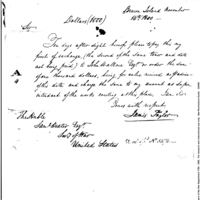 Sir
Dollars (1000)
Ten days after sight hereof please to pay this my
first of exchange, (the second of the same tenor and date
not being paid) to John Wallace Esqr or order the sum
of one thousand dollars, being for value received
the date and charge the same to my account as Super
intendent of the works at this place. I am Sir
Yours with respect
James Taylor
The Honble
Saml Dexter Esqr
Secy of War
United States